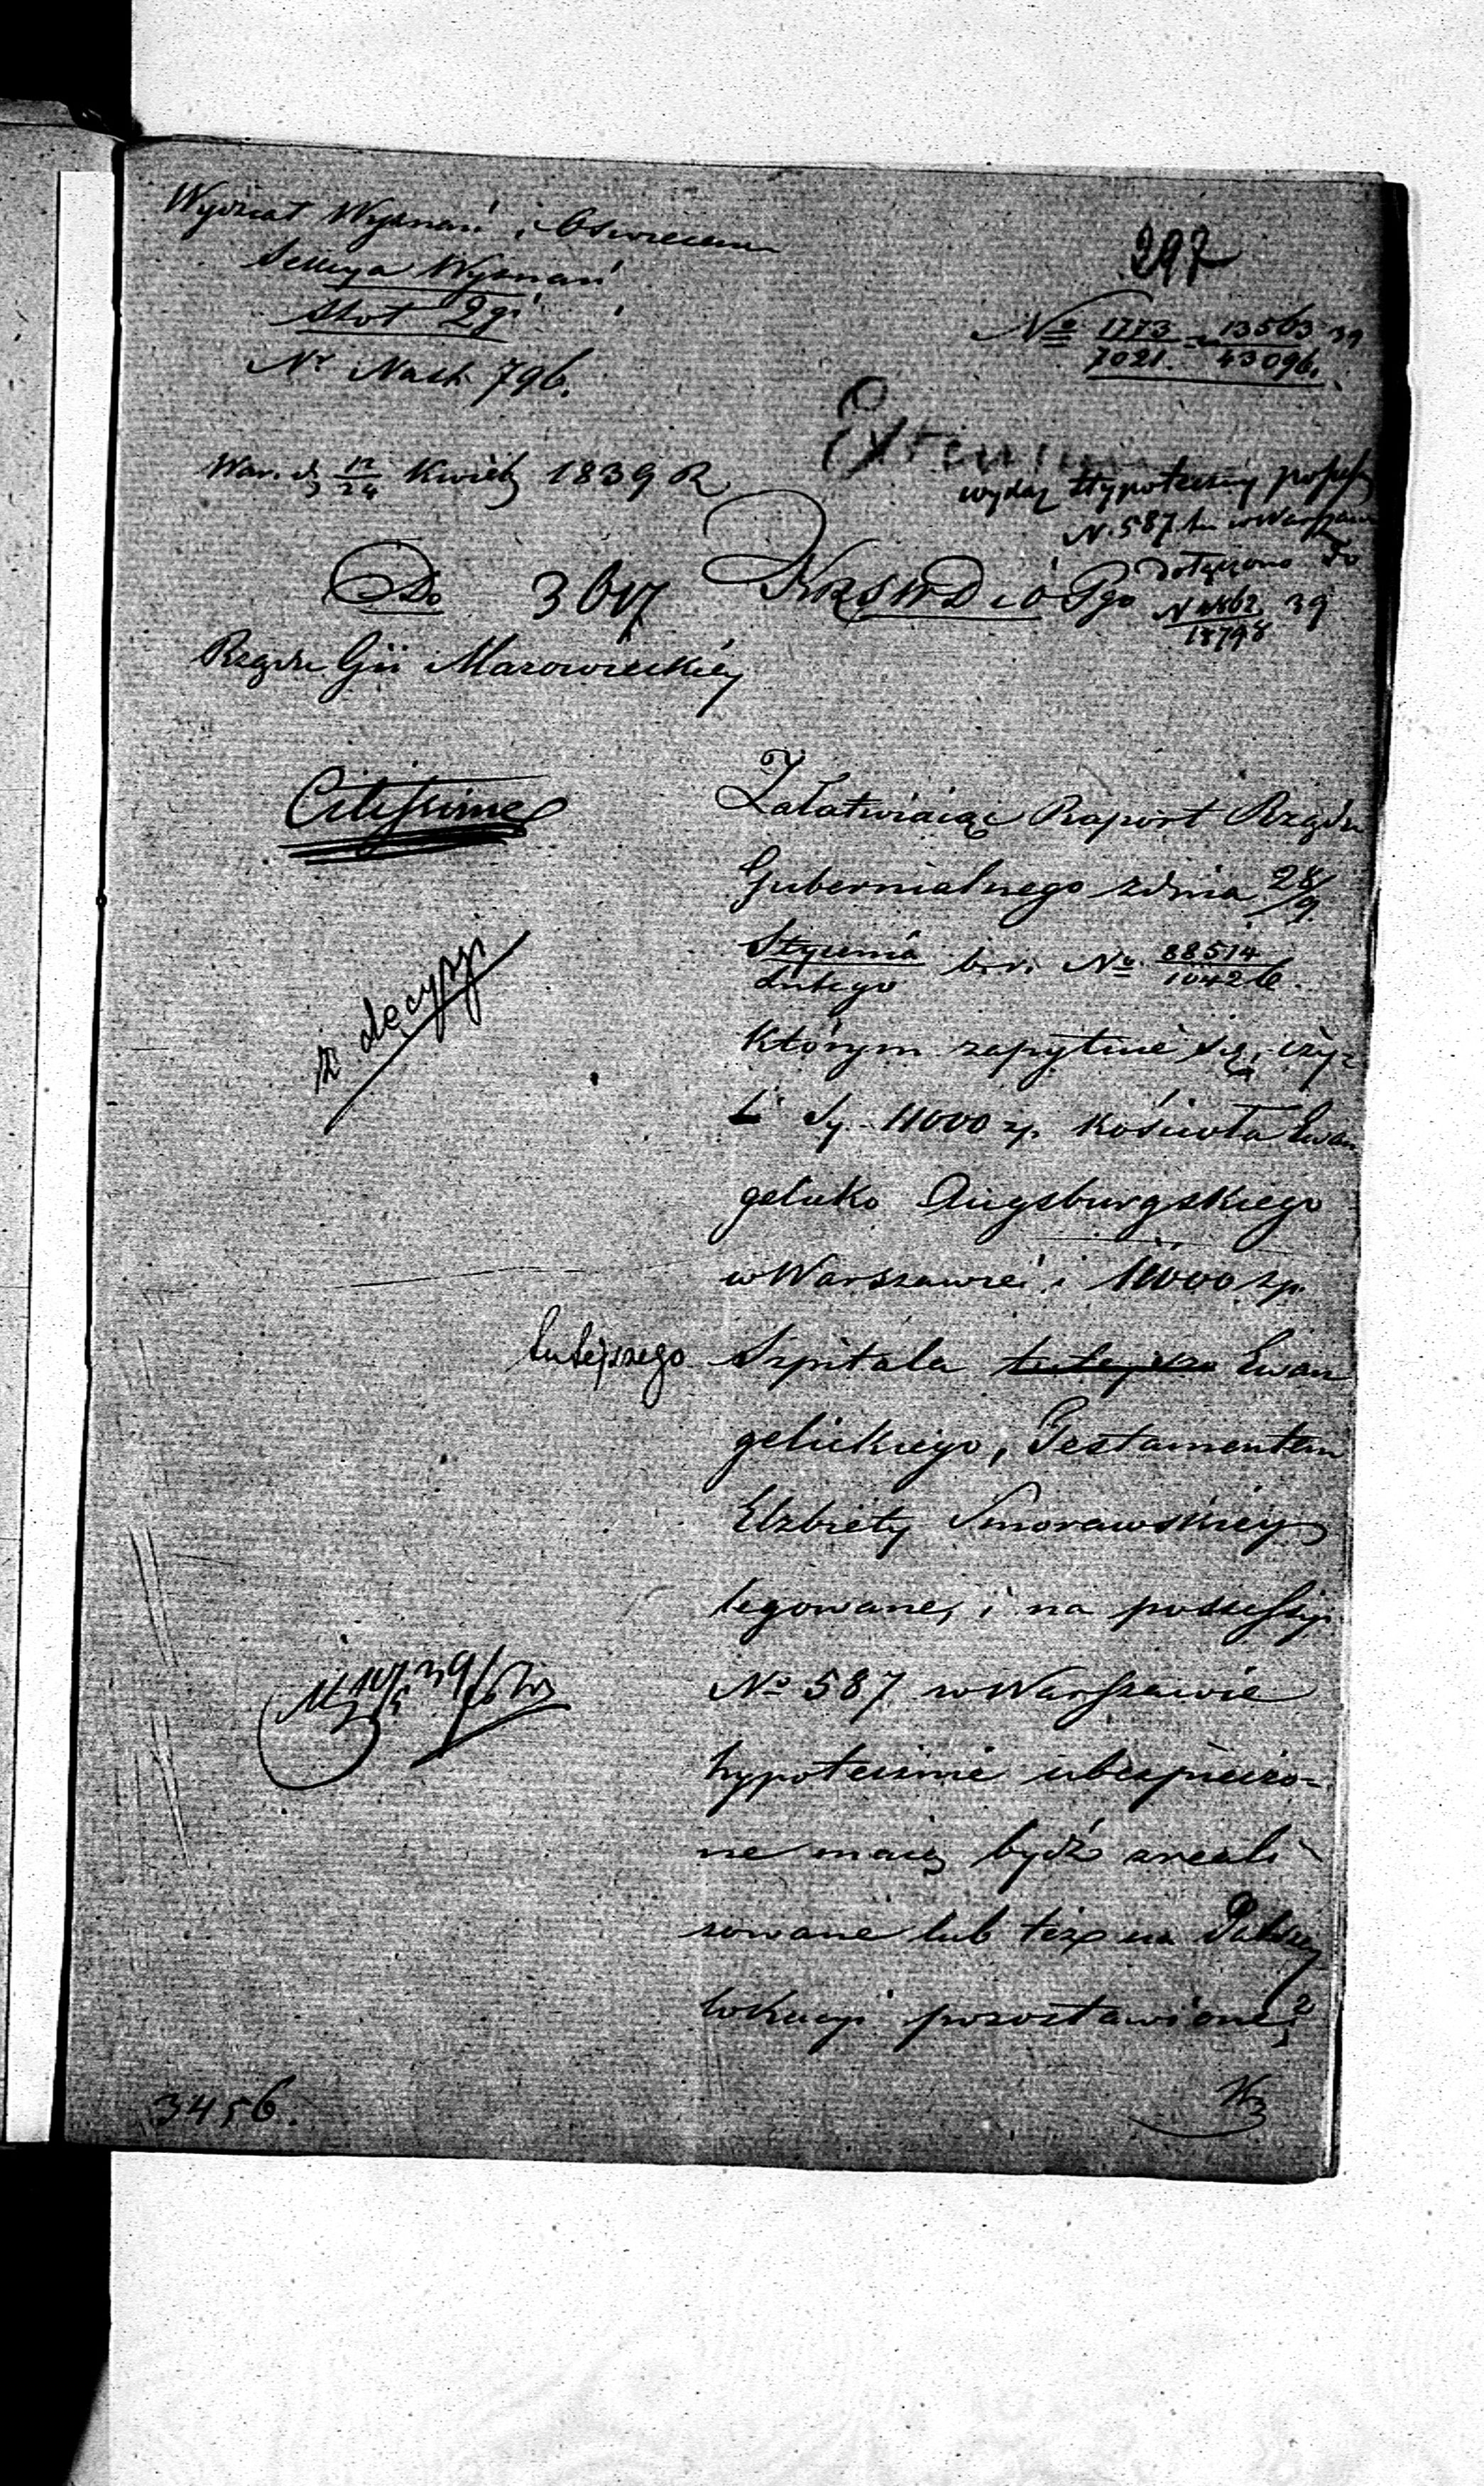 Wydział Wyznań i Oświecenia
Sekcya Wyznań
Stół 2gi
Nr Nach 796.
297
No 1773/7021. 13563/43096. 39
War. d. 12/24 Kwiet. 1839 R
wyciąg Hypoteczny posses.
N. 587 w Warszawie
dołączono do
39
18798
Do
KRSWD i OPgo
Rządu Gii Mazowieckiéy
Citissime
Załatwiaiąc Raport Rządu
Gubernialnego z dnia 28/9
Stycznia/Lutego b. r. No 88514/10426.
z decyzji
którym zapytuie się, czy
Sy 11000 zp. kościoła Ewan
gelicko Augsburgskiego
w Warszawie i 11000 zp.
tutejszego Szpitala Ewan
gelickiego, Testamentem
Elżbiety Smorawskiey
legowane, i na possessyi
No 587 w Warszawie
hypotecznie ubezpieczo-
ne maią bydź zreali
zowane lub też na dalszey
lokacyi pozostawione?
3456.